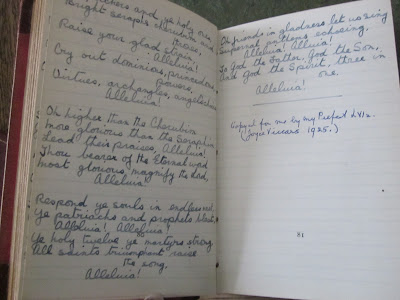 watchers and ye holy ones
Bright seraphs cherubim and
thrones,
Raise your glad strain,
Alleluia!
Cry out dominions, princedoms,
powers,
Virtues, archangels, angels choirs
Alleluia!
Oh higher than the Cherubim
more glorious than the Seraphim
Lead their praises, Alleluia!
Thou bearer of the Eternal word
most glorious, magnify the Lord,
Alleluia
Respond ye souls in endless rest,
Ye patriarchs and prophets blest,
Alleluia! Alleluia!
Ye holy twelve, ye martyrs strong
All saints triumphant raise
the song.
Alleluia!
Oh friends in gladness let us sing
Supernal anthems echoing,
Alleluia! Alleluia!
To God the Father, God the Son,
and God the Spirit, three in
one.
Alleluia!
Copied for me by my Prefect LVI
(Joyce 1925.)